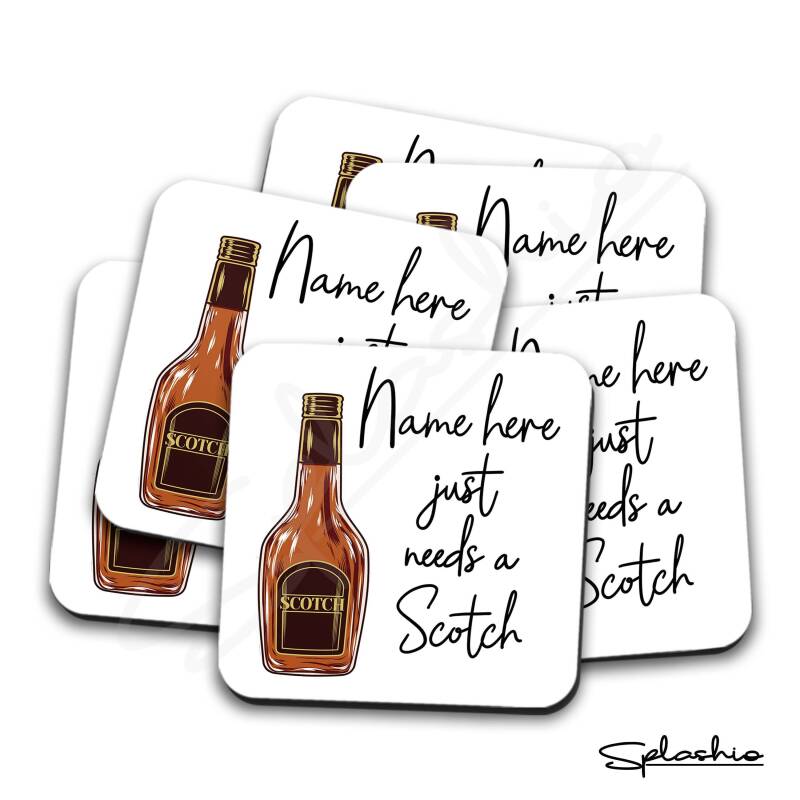 Name here
just
Name here
just
Name here
just
needs a
Scotch
SCOTCH
Name here
just
needs a
Scotch
SCOTCH
Splashio
Splashio